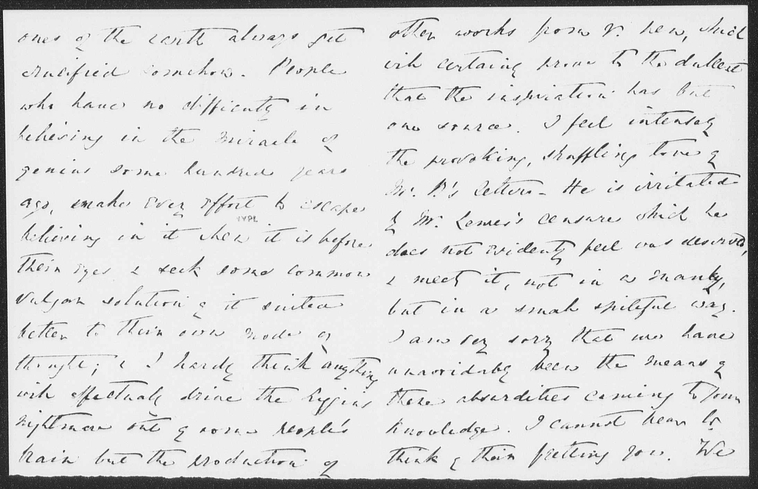 ones of the earth always get
crucified somehow. People
who have no difficulty in
believing in the miracle of
genius some hundred years
ago, make every effort to escape
believing in it when it is before
their eyes & seek some common
vulgar solution of it suited
better to their own mode of
thought; & I hardly think anything
will effectually drive the Liggins
nightmare out of some people's
brain but the production of
other works from you, which
will certainly prove to the dullest
that the inspiration has but
one source. I feel intensely
the provoking, shuffling tone of
Mr. B's letters - He is irritated
by Mr. Lewes's censure which he
does not evidently feel was deserved,
& meets it, not in a manly,
but in a small spiteful way.
I am very sorry that we have
unavoidably been the means of
these absurdities coming to your
knowledge. I cannot bear to
think of their fretting you. We